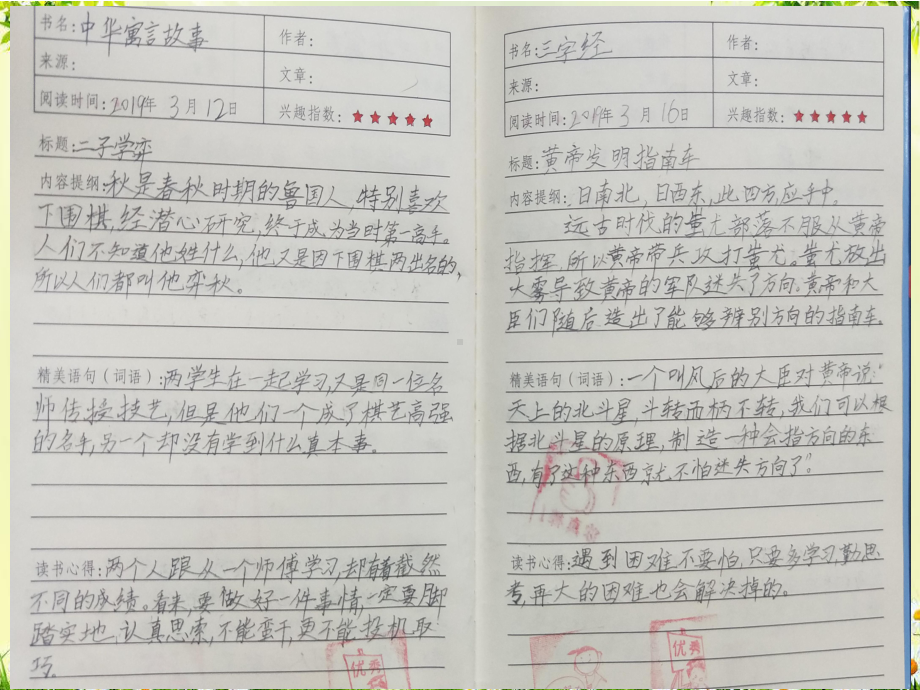 书名:中华寓言故事
作者:
来源:
文章:
阅读时间:2019年3月12日
兴趣指数:★★★★★
标题:二子学弈
内容提纲:秋是春秋时期的鲁国人,特别喜欢
下围棋,经潜心研究,终于成为当时第一高手。
人们不知道他姓什么,他又是因下围棋两出名的,
所以人们都叫他弈秋。
精美语句(词语):两学生在一起学习,又是同一位名
师传授技艺,但是他们一个成了棋艺高强
的名手,另一个却没有学到什么真本事。
读书心得:两个人跟从一个师傅学习,却有着截然
不同的成绩。看来,要做好一件事情,一定要脚
踏实地,认真思索,不能蛮干,更不能投机取
巧。
优秀
书名:三字经
作者:
来源:
文章:
阅读时间:2019年3月16日
兴趣指数:★★★★★
标题:黄帝发明指南车
内容提纲:日南北,日西东,此四方,应乎中。
远古时代的蚩尤部落不服从黄帝
指挥,所以黄帝带兵攻打蚩尤。蚩尤放出
大雾导致黄帝的军队迷失了方向,黄帝和大
臣们随后造出了能够辨别方向的指南车。
精美语句(词语):一个叫风后的大臣对黄帝说:"
天上的北斗星,斗转而柄不转,我们可以根
据北斗星的原理,制造一种会指方向的东
西,有了这种东西就不怕迷失方向了。"
读书心得:遇到困难不要怕,只要多学习,勤思
考,再大的困难也会解决掉的。
优秀